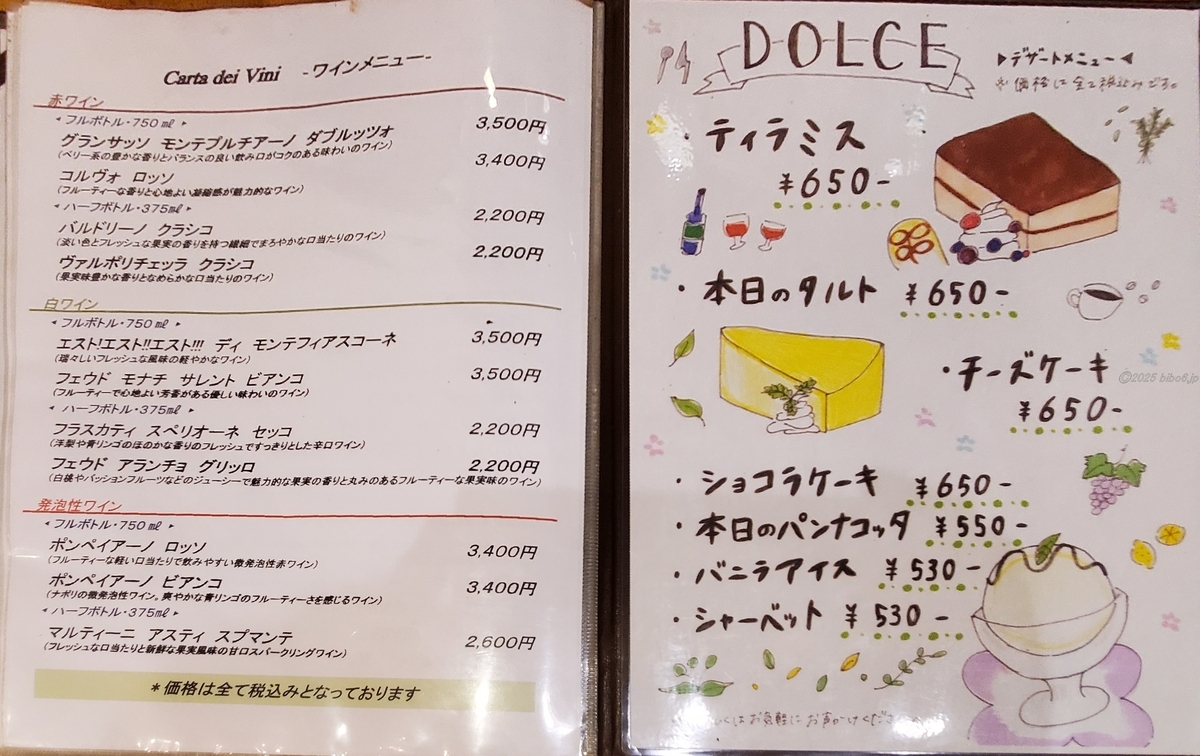 Carta dei Vini -ワインメニュー-
赤ワイン
◂ フルボトル・750㎖ ▸
グランサッソ モンテプルチアーノ ダブルッツオ 3,500円
(ベリー系の豊かな香りとバランスの良い飲み口がコクのある味わいのワイン)
コルヴォ ロッソ 3,400円
(フルーティーな香りと心地よい凝縮感が魅力的なワイン)
◂ ハーフボトル・375㎖ ▸
バルドリーノ クラシコ 2,200円
(淡い色とフレッシュな果実の香りを持つ繊細でまろやかな口当たりのワイン)
ヴァルポリチェッラ クラシコ 2,200円
(果実味豊かな香りとなめらかな口当たりのワイン)
白ワイン
◂ フルボトル・750㎖ ▸
エスト!エスト!!エスト!!! ディ モンテフィアスコーネ 3,500円
(瑞々しいフレッシュな風味の軽やかなワイン)
フェウド モナチ サレント ビアンコ 3,500円
(フルーティーで心地よい芳香がある優しい味わいのワイン)
◂ ハーフボトル・375㎖ ▸
フラスカティ スペリオーネ セッコ 2,200円
(洋梨や青リンゴのほのかな香りのフレッシュですっきりとした辛口ワイン)
フェウド アランチョ グリッロ 2,200円
(白桃やパッションフルーツなどのジューシーで魅力的な果実の香りと丸みのあるフルーティーな果実味のワイン)
発泡性ワイン
◂ フルボトル・750㎖ ▸
ポンペイアーノ ロッソ 3,400円
(フルーティーな軽い口当たりで飲みやすい微発泡性赤ワイン)
ポンペイアーノ ビアンコ 3,400円
(ナポリの微発泡性ワイン。爽やかな青リンゴのフルーティーさを感じるワイン)
◂ ハーフボトル・375㎖ ▸
マルティーニ アスティ スプマンテ 2,600円
(フレッシュな口当たりと新鮮な果実風味の甘口スパークリングワイン)
*価格は全て税込みとなっております
DOLCE
▶デザートメニュー◀
※価格は全て税込みです。
・ティラミス
¥650-
・本日のタルト ¥650-
・チーズケーキ
¥650-
©2025 bibo6.jp
・ショコラケーキ ¥650-
・本日のパンナコッタ ¥550-
・バニラアイス ¥530-
・シャーベット ¥530-
くはお気軽にお声かけくださ